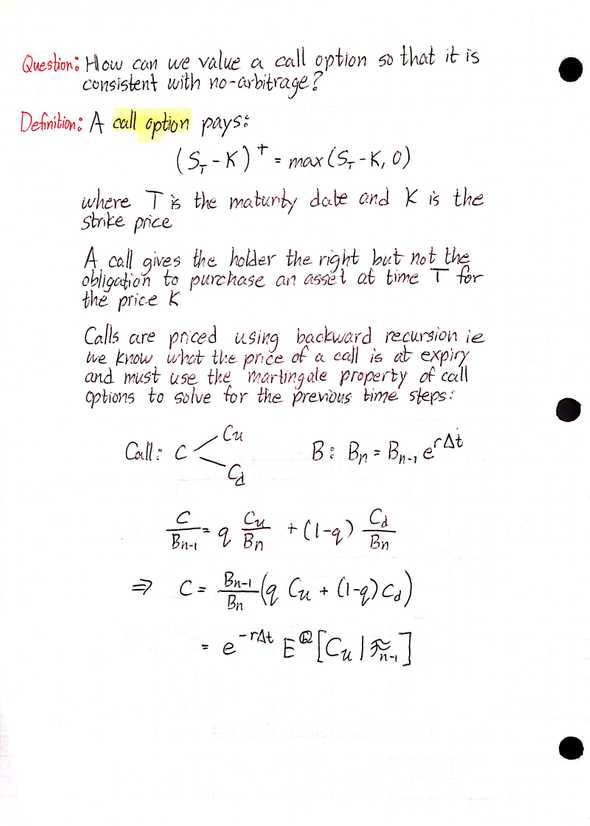 Question: How can we value a call option so that it is
consistent with no-arbitrage?
Definition: A call option pays:
(S_T - K)^+ = max(S_T - K, 0)
where T is the maturity date and K is the
strike price
A call gives the holder the right but not the
obligation to purchase an asset at time T for
the price K
Calls are priced using backward recursion ie
we know what the price of a call is at expiry
and must use the martingale property of call
options to solve for the previous time steps:
Call: C < C_u C_d B: B_n = B_{n-1} e^{rΔt}
C/B_{n-1} = q C_u/B_n + (1-q) C_d/B_n
⇒ C = B_{n-1}/B_n (q C_u + (1-q) C_d)
= e^{-rΔt} E^ℚ[C_u | ℱ_{n-1}]